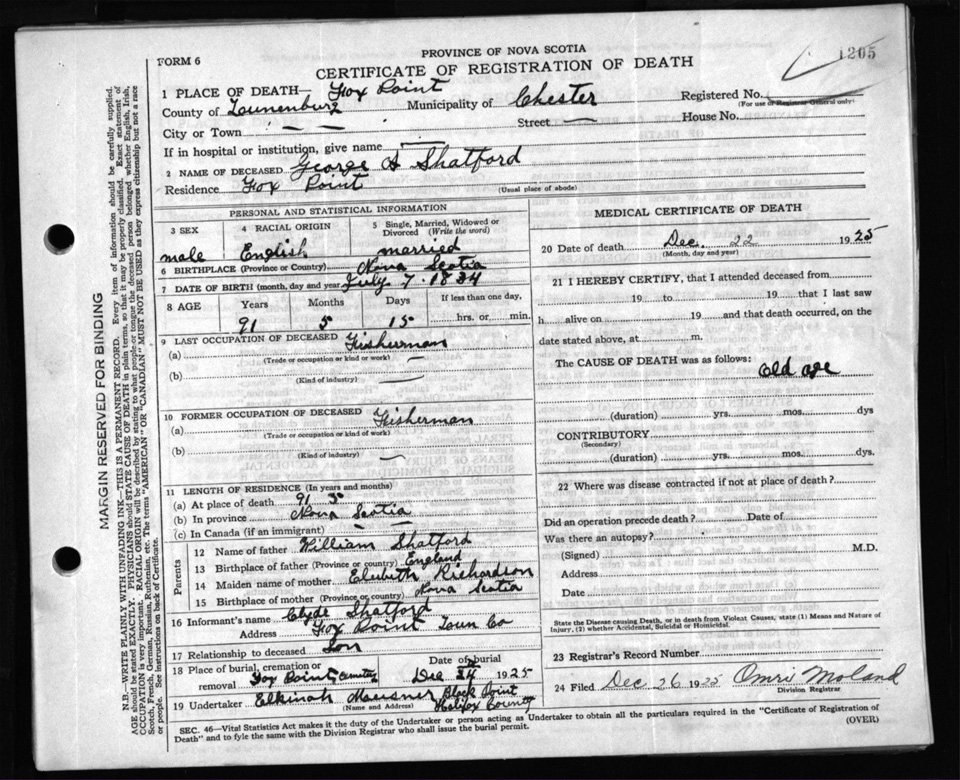 1205
FORM 6
PROVINCE OF NOVA SCOTIA
CERTIFICATE OF REGISTRATION OF DEATH
1 PLACE OF DEATH— Fox Point
County of Lunenburg Municipality of Chester Registered No.
(For use of Registrar General only)
City or Town — — Street — House No.
If in hospital or institution, give name —
2 NAME OF DECEASED George A Shatford
Residence Fox Point
(Usual place of abode)
PERSONAL AND STATISTICAL INFORMATION
3 SEX 4 RACIAL ORIGIN 5 Single, Married, Widowed or Divorced (Write the word)
male English married
6 BIRTHPLACE (Province or Country) Nova Scotia
7 DATE OF BIRTH (month, day and year) July 7. 1834
8 AGE Years Months Days If less than one day,
91 5 15 hrs. or min.
9 LAST OCCUPATION OF DECEASED Fisherman
(a) —
(Trade or occupation or kind of work)
(b) —
(Kind of industry)
10 FORMER OCCUPATION OF DECEASED Fisherman
(a)
(Trade or occupation or kind of work)
(b) —
(Kind of industry)
11 LENGTH OF RESIDENCE (In years and months)
(a) At place of death 91 5
(b) In province Nova Scotia
(c) In Canada (if an immigrant) — —
Parents
12 Name of father William Shatford
13 Birthplace of father (Province or country) England
14 Maiden name of mother Elisibeth Richardson
15 Birthplace of mother (Province or country) Nova Scotia
16 Informant's name Clyde Shatford
Address Fox Point Lun Co
17 Relationship to deceased Son
18 Place of burial, cremation or removal Fox Point Date of burial Dec 24 1925
19 Undertaker Elkinah Black Point
(Name and Address) Halifax County
MEDICAL CERTIFICATE OF DEATH
20 Date of death Dec. 22 1925
(Month, day and year)
21 I HEREBY CERTIFY, that I attended deceased from
19 to 19 that I last saw
h alive on 19 and that death occurred, on the
date stated above, at m.
The CAUSE OF DEATH was as follows:
old age
(duration) yrs. mos. dys
CONTRIBUTORY
(Secondary)
(duration) yrs. mos. dys.
22 Where was disease contracted if not at place of death?
Did an operation precede death? Date of
Was there an autopsy?
(Signed) M.D.
Address
Date
State the Disease causing Death, or in death from Violent Causes, state (1) Means and Nature of
Injury, (2) whether Accidental, Suicidal or Homicidal.
23 Registrar's Record Number
24 Filed Dec 26 1925 Omri Moland
Division Registrar
SEC. 46—Vital Statistics Act makes it the duty of the Undertaker or person acting as Undertaker to obtain all the particulars required in the "Certificate of Registration of
Death" and to fyle the same with the Division Registrar who shall issue the burial permit.
(OVER)
MARGIN RESERVED FOR BINDING
N.B.—WRITE PLAINLY WITH UNFADING INK—THIS IS A PERMANENT RECORD. Every item of information should be carefully supplied.
AGE should be stated EXACTLY. PHYSICIANS should STATE CAUSE OF DEATH in plain terms, so that it may be properly classified. Exact statement of
OCCUPATION is very important. RACIAL ORIGIN will be described by stating to what people or tongue the deceased person belonged whether English, Irish,
Scotch, French, German, Russian, Ruthenian, etc. The terms "AMERICAN" OR "CANADIAN" MUST NOT BE USED as they express citizenship but not a race
or people. See instructions on back of Certificate.